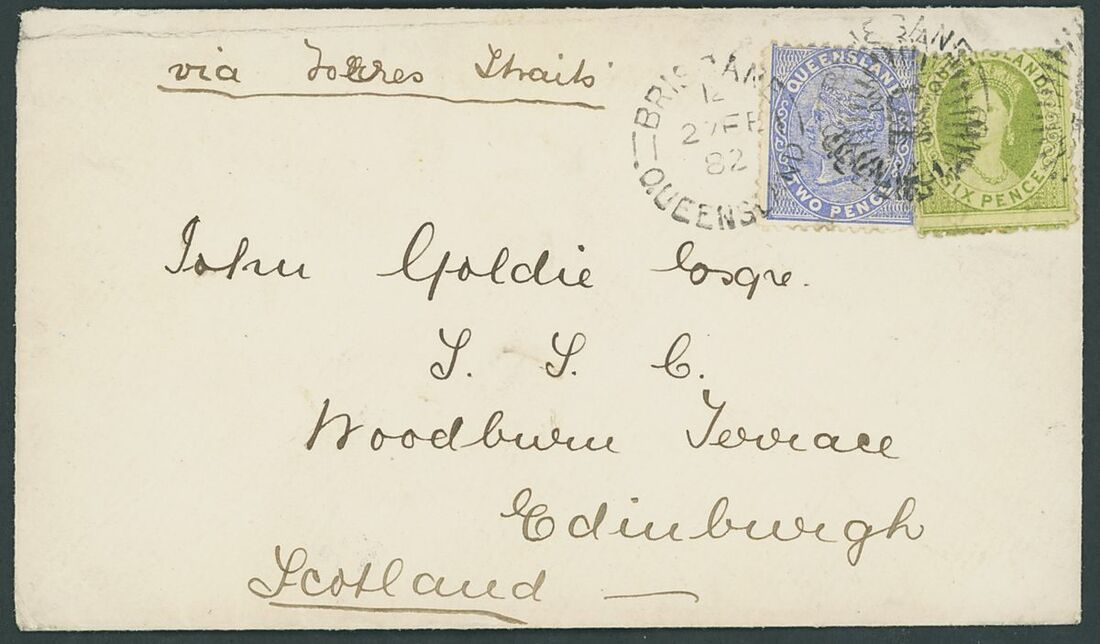 via Torres Straits
BRISBANE
12
27 FE
82
QUEENSLAND
QUEENSLAND
TWO PENCE
SIX PENCE
John Goldie Esqre.
S. S. C.
Woodburn Terrace
Edinburgh
Scotland —